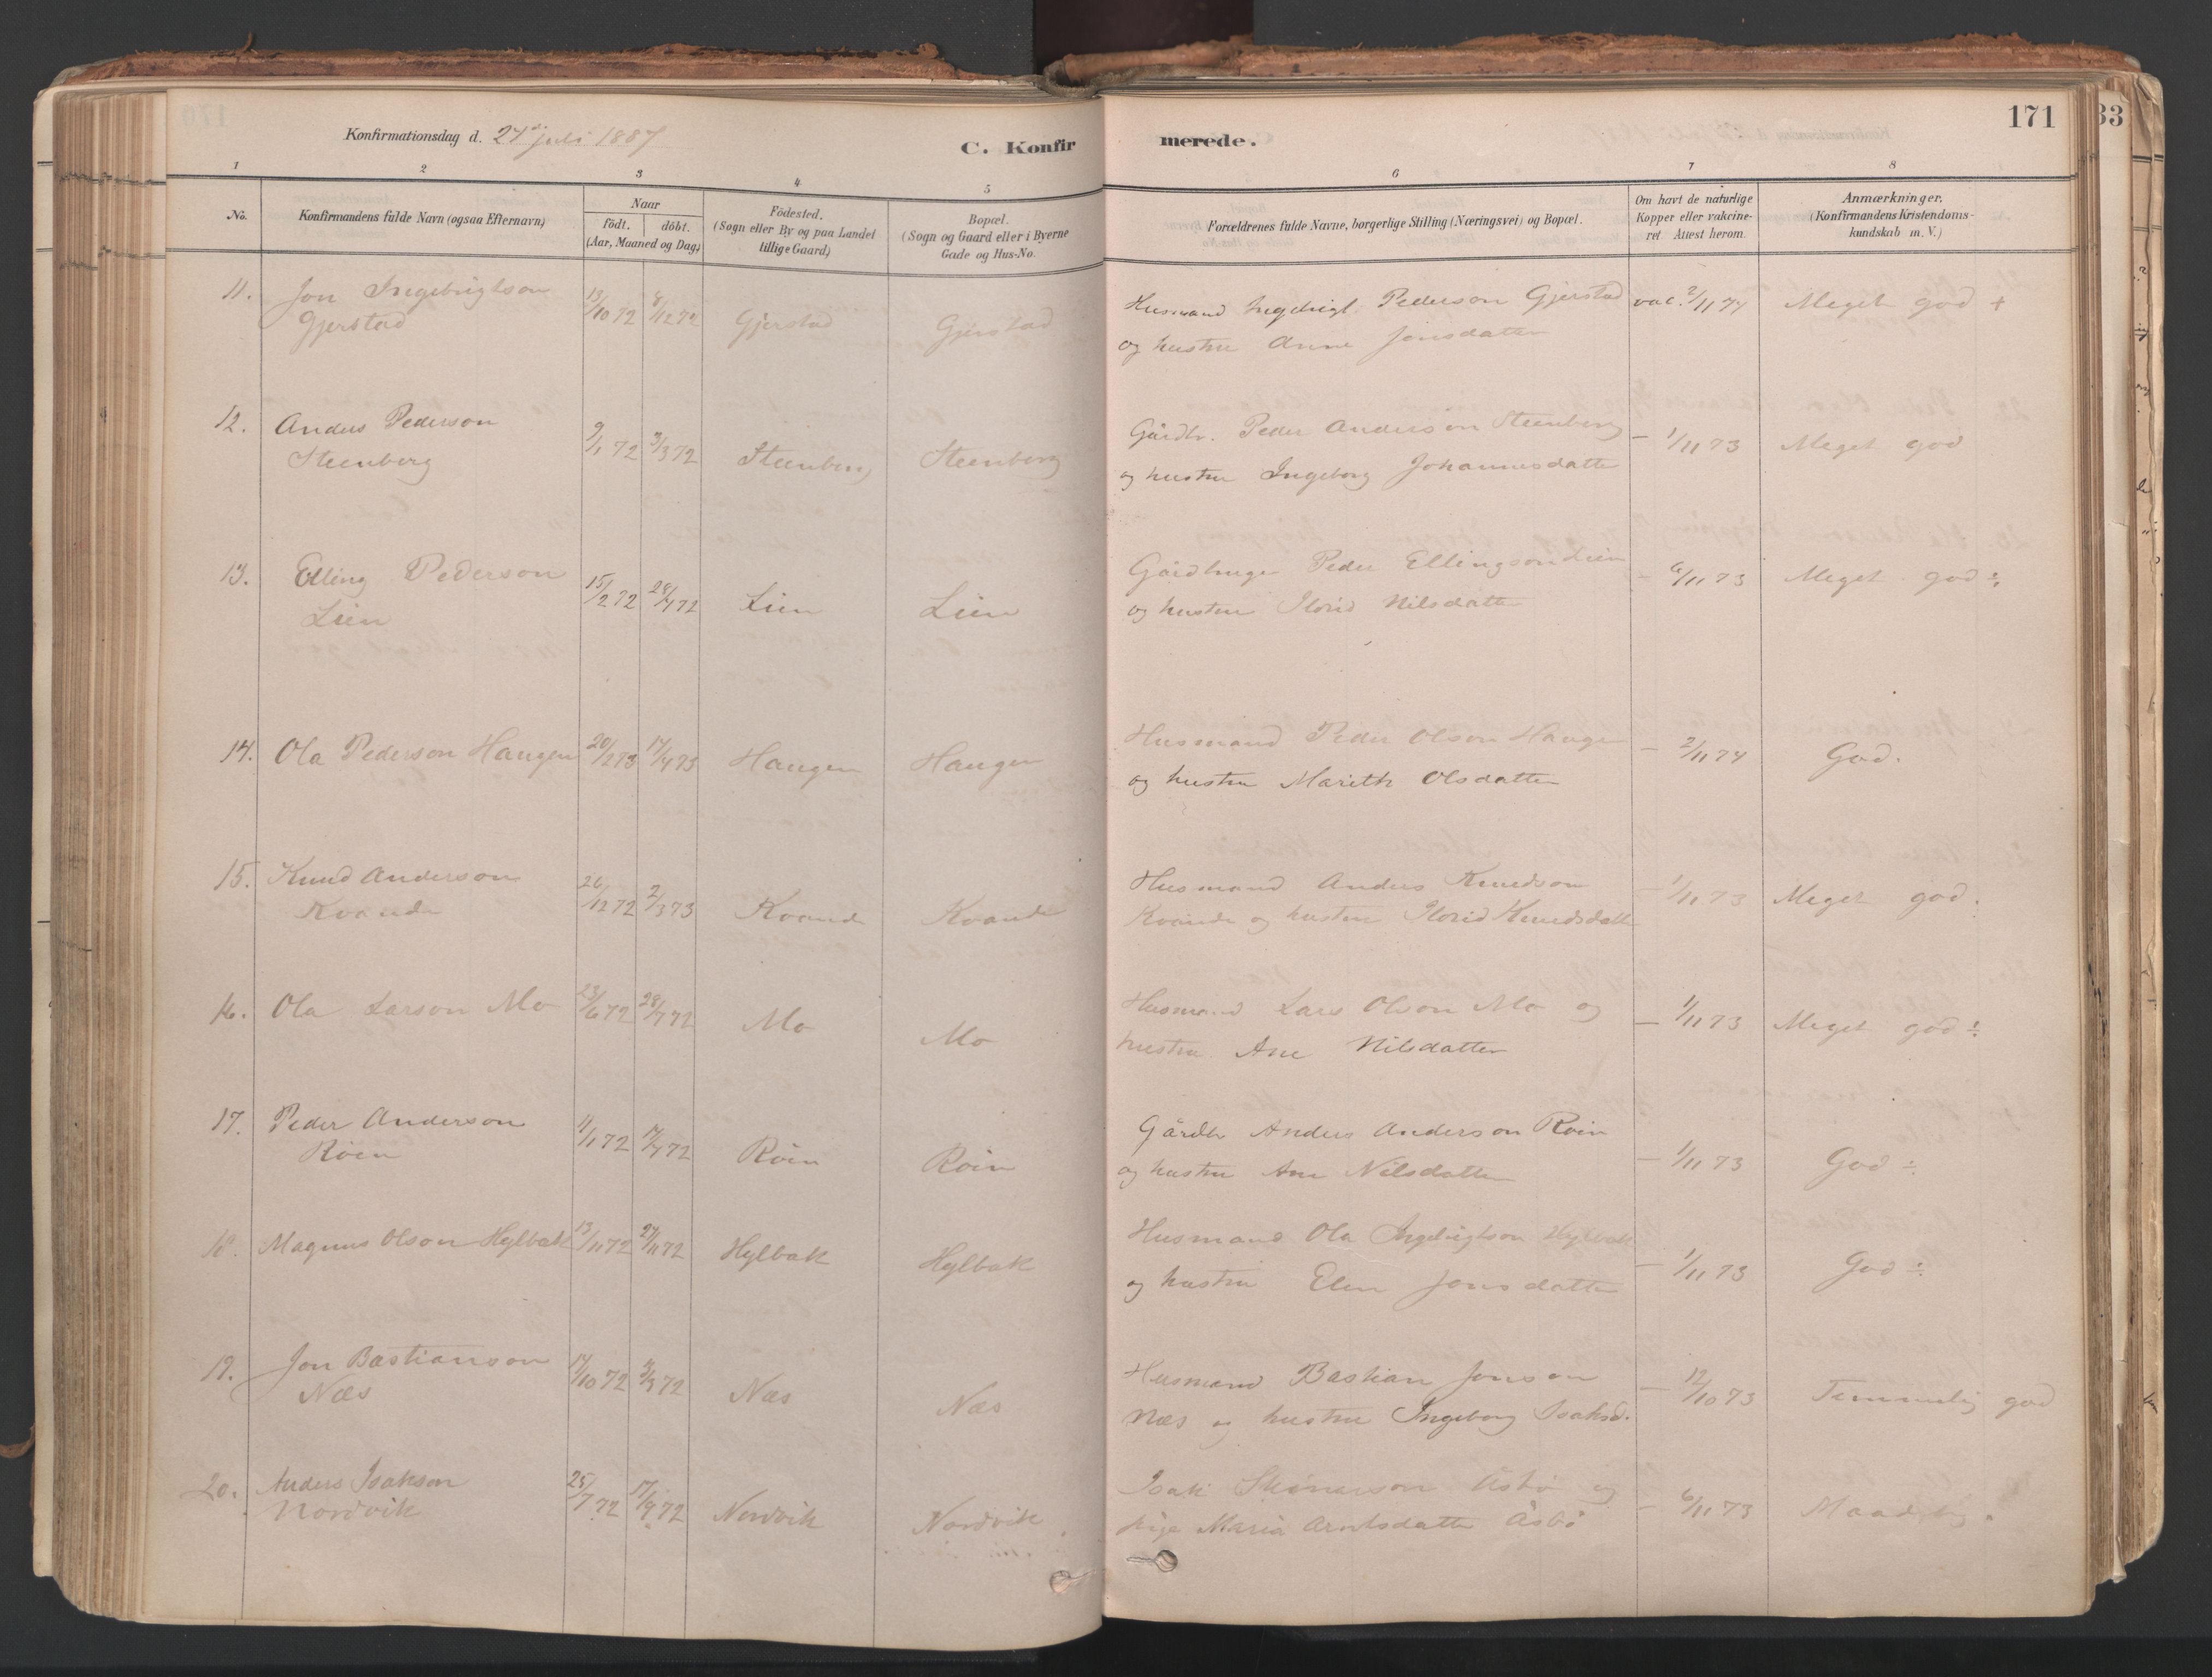 171
33
Konfirmationsdag d. 24de juli 1887
C. Konfirmerede.
1 2 3 4 5 6 7 8
No.
Konfirmandens fulde Navn (ogsaa Efternavn)
Naar
födt. döbt.
(Aar, Maaned og Dag)
Födested.
(Sogn eller By og paa Landet
tillige Gaard)
Bopæl.
(Sogn og Gaard eller i Byerne
Gade og Hus-No.
Forældrenes fulde Navne, borgerlige Stilling (Næringsvei) og Bopæl.
Om havt de naturlige
Kopper eller vakcine-
ret Attest herom.
Anmærkninger.
(Konfirmandens Kristendoms-
kundskab m. V.)
11. Jon Ingebrigtson 13/10 72 8/12 72 Gjerstad Gjerstad Husmand Ingebrigt Pederson Gjerstad vac. 2/11 74 Meget god +
Gjerstad og hustru Anne Jonsdatter
12. Anders Pederson 9/1 72 3/3 72 Steenberg Steenberg Gårdbr. Peder Anderson Steenberg — 1/11 73 Meget god
Steenberg og hustru Ingeborg Johannesdatter
13. Elling Pederson 15/2 72 28/4 72 Lien Lien Gårdbruger Peder Ellingson Lien — 6/11 73 Meget god ÷
Lien og hustru Nilsdatter
14. Ola Pederson Haugen 20/2 73 14/4 73 Haugen Haugen Husmand Peder Olson Haugen — 2/11 74 God.
og hustru Marith Olsdatter
15. Knud Anderson 26/12 72 2/3 73 Kvande Kvande Husmand Anders Knudson — 1/11 73 Meget god.
Kvande Kvande og hustru Knudsdatter
16. Ola Larson Mo 23/6 72 28/7 72 Mo Mo Husmand Lars Olson Mo og — 1/11 73 Meget god ÷
hustru Ane Nilsdatter
17. Peder Anderson 11/1 72 /4 72 Röen Röen Gårdbr Anders Anderson Röen — 1/11 73 God ÷
Röen og hustru Ane Nilsdatter
18. Magnus Olson Hylbak 13/11 72 24/11 72 Hylbak Hylbak Husmand Ola Ingebrigtson Hylbak — 1/11 73 God ÷
og hustru Elen Jonsdatter
19. Jon Bastianson /10 72 3/ 72 Næs Næs Husmand Bastian Jonson — 12/10 73 Temmelig god
Næs Næs og hustru Ingeborg Isaksd.
20. Anders Isakson 25/7 72 17/ 72 Nordvik Nordvik Isak Åsbö og — 6/11 73 Maadelig.
Nordvik pige Maria Arntsdatter Åsbö